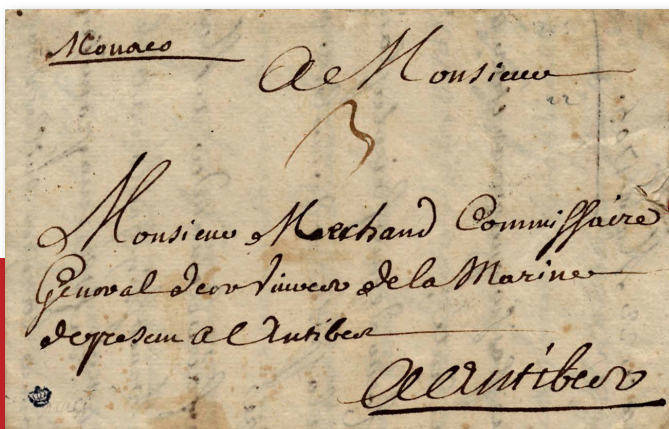 Monaco
A Monsieur
3
22
Monsieur Merchand Commissaire
General des vivres de la Marine
de presen a Antibes
A Antibes